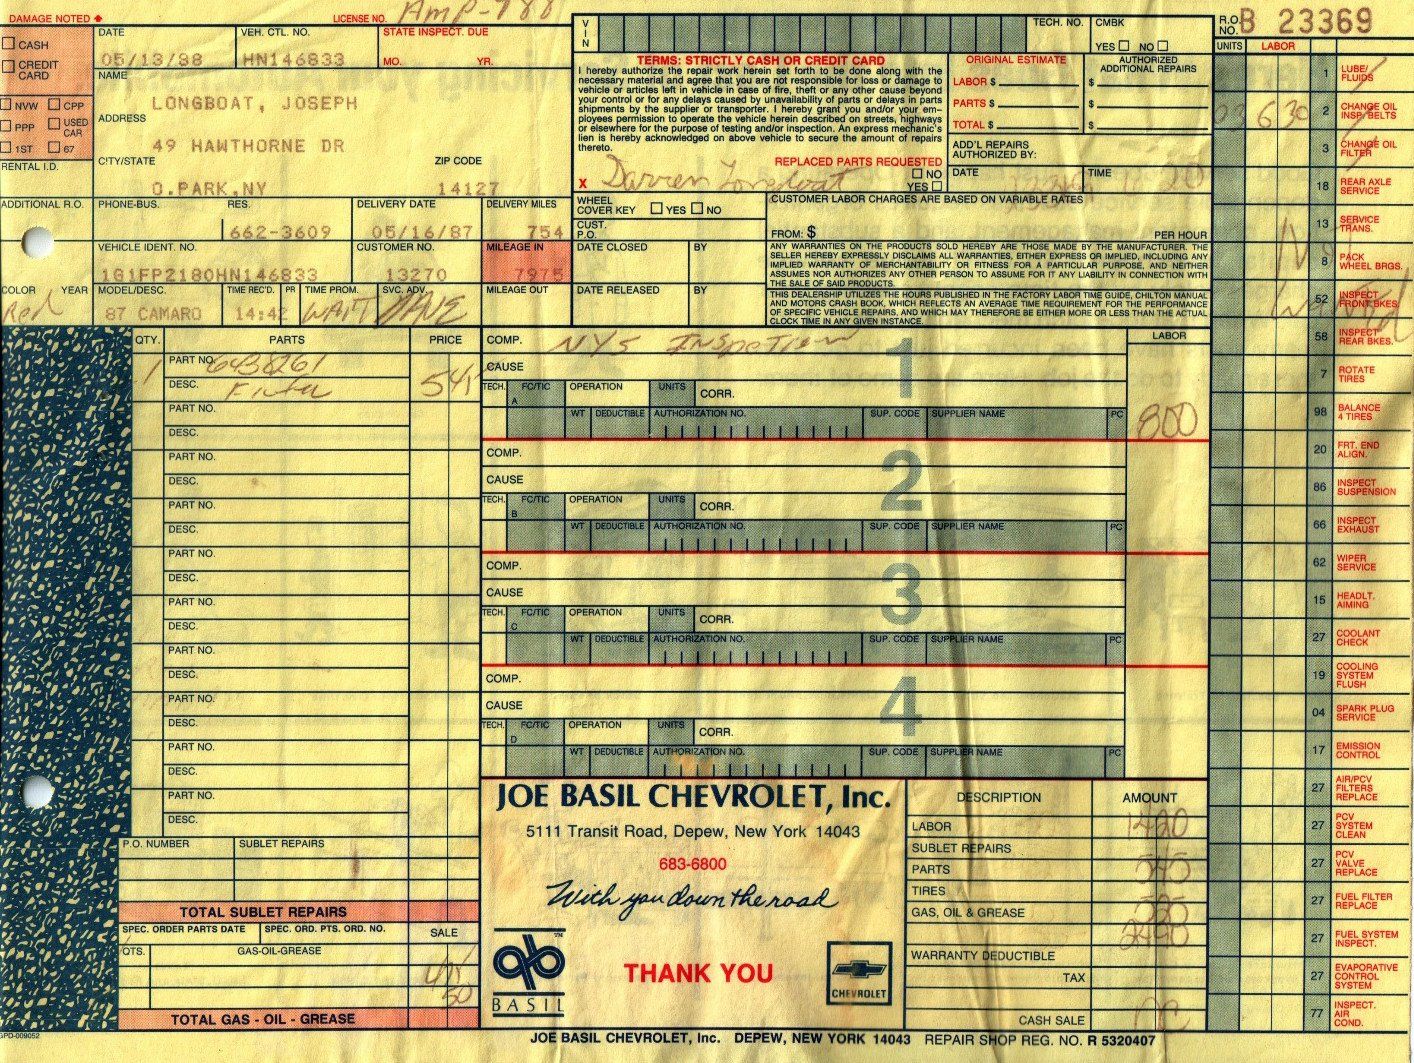 DAMAGE NOTED
LICENSE NO.
R.O. NO. B 23369
CASH
CREDIT CARD
NVW CPP
PPP USED CAR
1ST 67
RENTAL I.D.
DATE
05/13/88
VEH. CTL. NO.
HN146833
STATE INSPECT. DUE
MO. YR.
NAME
LONGBOAT, JOSEPH
ADDRESS
49 HAWTHORNE DR
CITY/STATE ZIP CODE
O.PARK,NY 14127
ADDITIONAL R.O.
PHONE-BUS. RES.
662-3609
DELIVERY DATE
05/16/87
DELIVERY MILES
754
VEHICLE IDENT. NO.
1G1FP2180HN146833
CUSTOMER NO.
13270
MILEAGE IN
7975
COLOR YEAR
Red
MODEL/DESC.
87 CAMARO
TIME REC'D.
14:42
PR
TIME PROM.
WAIT
SVC. ADV.
MILEAGE OUT
VIN
TECH. NO.
CMBK
YES NO
TERMS: STRICTLY CASH OR CREDIT CARD
I hereby authorize the repair work herein set forth to be done along with the
necessary material and agree that you are not responsible for loss or damage to
vehicle or articles left in vehicle in case of fire, theft or any other cause beyond
your control or for any delays caused by unavailability of parts or delays in parts
shipments by the supplier or transporter. I hereby grant you and/or your em-
ployees permission to operate the vehicle herein described on streets, highways
or elsewhere for the purpose of testing and/or inspection. An express mechanic's
lien is hereby acknowledged on above vehicle to secure the amount of repairs
thereto.
REPLACED PARTS REQUESTED
NO
YES
X Darren Longboat
ORIGINAL ESTIMATE
LABOR $
PARTS $
TOTAL $
AUTHORIZED ADDITIONAL REPAIRS
$
$
$
ADD'L REPAIRS AUTHORIZED BY:
DATE TIME
WHEEL COVER KEY YES NO
CUST. P.O.
CUSTOMER LABOR CHARGES ARE BASED ON VARIABLE RATES
FROM: $ PER HOUR
DATE CLOSED BY
DATE RELEASED BY
ANY WARRANTIES ON THE PRODUCTS SOLD HEREBY ARE THOSE MADE BY THE MANUFACTURER. THE
SELLER HEREBY EXPRESSLY DISCLAIMS ALL WARRANTIES, EITHER EXPRESS OR IMPLIED, INCLUDING ANY
IMPLIED WARRANTY OF MERCHANTABILITY OR FITNESS FOR A PARTICULAR PURPOSE, AND NEITHER
ASSUMES NOR AUTHORIZES ANY OTHER PERSON TO ASSUME FOR IT ANY LIABILITY IN CONNECTION WITH
THE SALE OF SAID PRODUCTS.
THIS DEALERSHIP UTILIZES THE HOURS PUBLISHED IN THE FACTORY LABOR TIME GUIDE, CHILTON MANUAL
AND MOTORS CRASH BOOK, WHICH REFLECTS AN AVERAGE TIME REQUIREMENT FOR THE PERFORMANCE
OF SPECIFIC VEHICLE REPAIRS, AND WHICH MAY THEREFORE BE EITHER MORE OR LESS THAN THE ACTUAL
CLOCK TIME IN ANY GIVEN INSTANCE.
QTY. PARTS PRICE
1 PART NO. 6438261
DESC. Filter 545
PART NO.
DESC.
PART NO.
DESC.
PART NO.
DESC.
PART NO.
DESC.
PART NO.
DESC.
PART NO.
DESC.
PART NO.
DESC.
PART NO.
DESC.
PART NO.
DESC.
P.O. NUMBER SUBLET REPAIRS
TOTAL SUBLET REPAIRS
SPEC. ORDER PARTS DATE SPEC. ORD. PTS. ORD. NO. SALE
QTS. GAS-OIL-GREASE
TOTAL GAS - OIL - GREASE
GPD-009052
LABOR
COMP. NYS Inspection
1
CAUSE
TECH. A FC/TIC OPERATION UNITS CORR.
WT DEDUCTIBLE AUTHORIZATION NO. SUP. CODE SUPPLIER NAME PC
800
COMP.
2
CAUSE
TECH. B FC/TIC OPERATION UNITS CORR.
WT DEDUCTIBLE AUTHORIZATION NO. SUP. CODE SUPPLIER NAME PC
COMP.
3
CAUSE
TECH. C FC/TIC OPERATION UNITS CORR.
WT DEDUCTIBLE AUTHORIZATION NO. SUP. CODE SUPPLIER NAME PC
COMP.
4
CAUSE
TECH. D FC/TIC OPERATION UNITS CORR.
WT DEDUCTIBLE AUTHORIZATION NO. SUP. CODE SUPPLIER NAME PC
JOE BASIL CHEVROLET, Inc.
5111 Transit Road, Depew, New York 14043
683-6800
With you down the road
BASIL
THANK YOU
CHEVROLET
DESCRIPTION AMOUNT
LABOR
SUBLET REPAIRS
PARTS 545
TIRES
GAS, OIL & GREASE
WARRANTY DEDUCTIBLE
TAX
CASH SALE
JOE BASIL CHEVROLET, Inc. DEPEW, NEW YORK 14043 REPAIR SHOP REG. NO. R 5320407
UNITS LABOR
1 LUBE/ FLUIDS
03 630 2 CHANGE OIL INSP/BELTS
3 CHANGE OIL FILTER
18 REAR AXLE SERVICE
13 SERVICE TRANS.
8 PACK WHEEL BRGS.
52 INSPECT FRONT BKES.
58 INSPECT REAR BKES.
7 ROTATE TIRES
98 BALANCE 4 TIRES
20 FRT. END ALIGN.
86 INSPECT SUSPENSION
66 INSPECT EXHAUST
62 WIPER SERVICE
15 HEADLT. AIMING
27 COOLANT CHECK
19 COOLING SYSTEM FLUSH
04 SPARK PLUG SERVICE
17 EMISSION CONTROL
27 AIR/PCV FILTERS REPLACE
27 PCV SYSTEM CLEAN
27 PCV VALVE REPLACE
27 FUEL FILTER REPLACE
27 FUEL SYSTEM INSPECT.
27 EVAPORATIVE CONTROL SYSTEM
77 INSPECT. AIR COND.